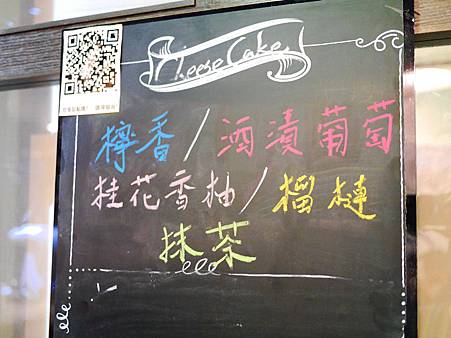 Cheese Cake
檸香/酒漬葡萄
桂花香柚/榴槤
抹茶